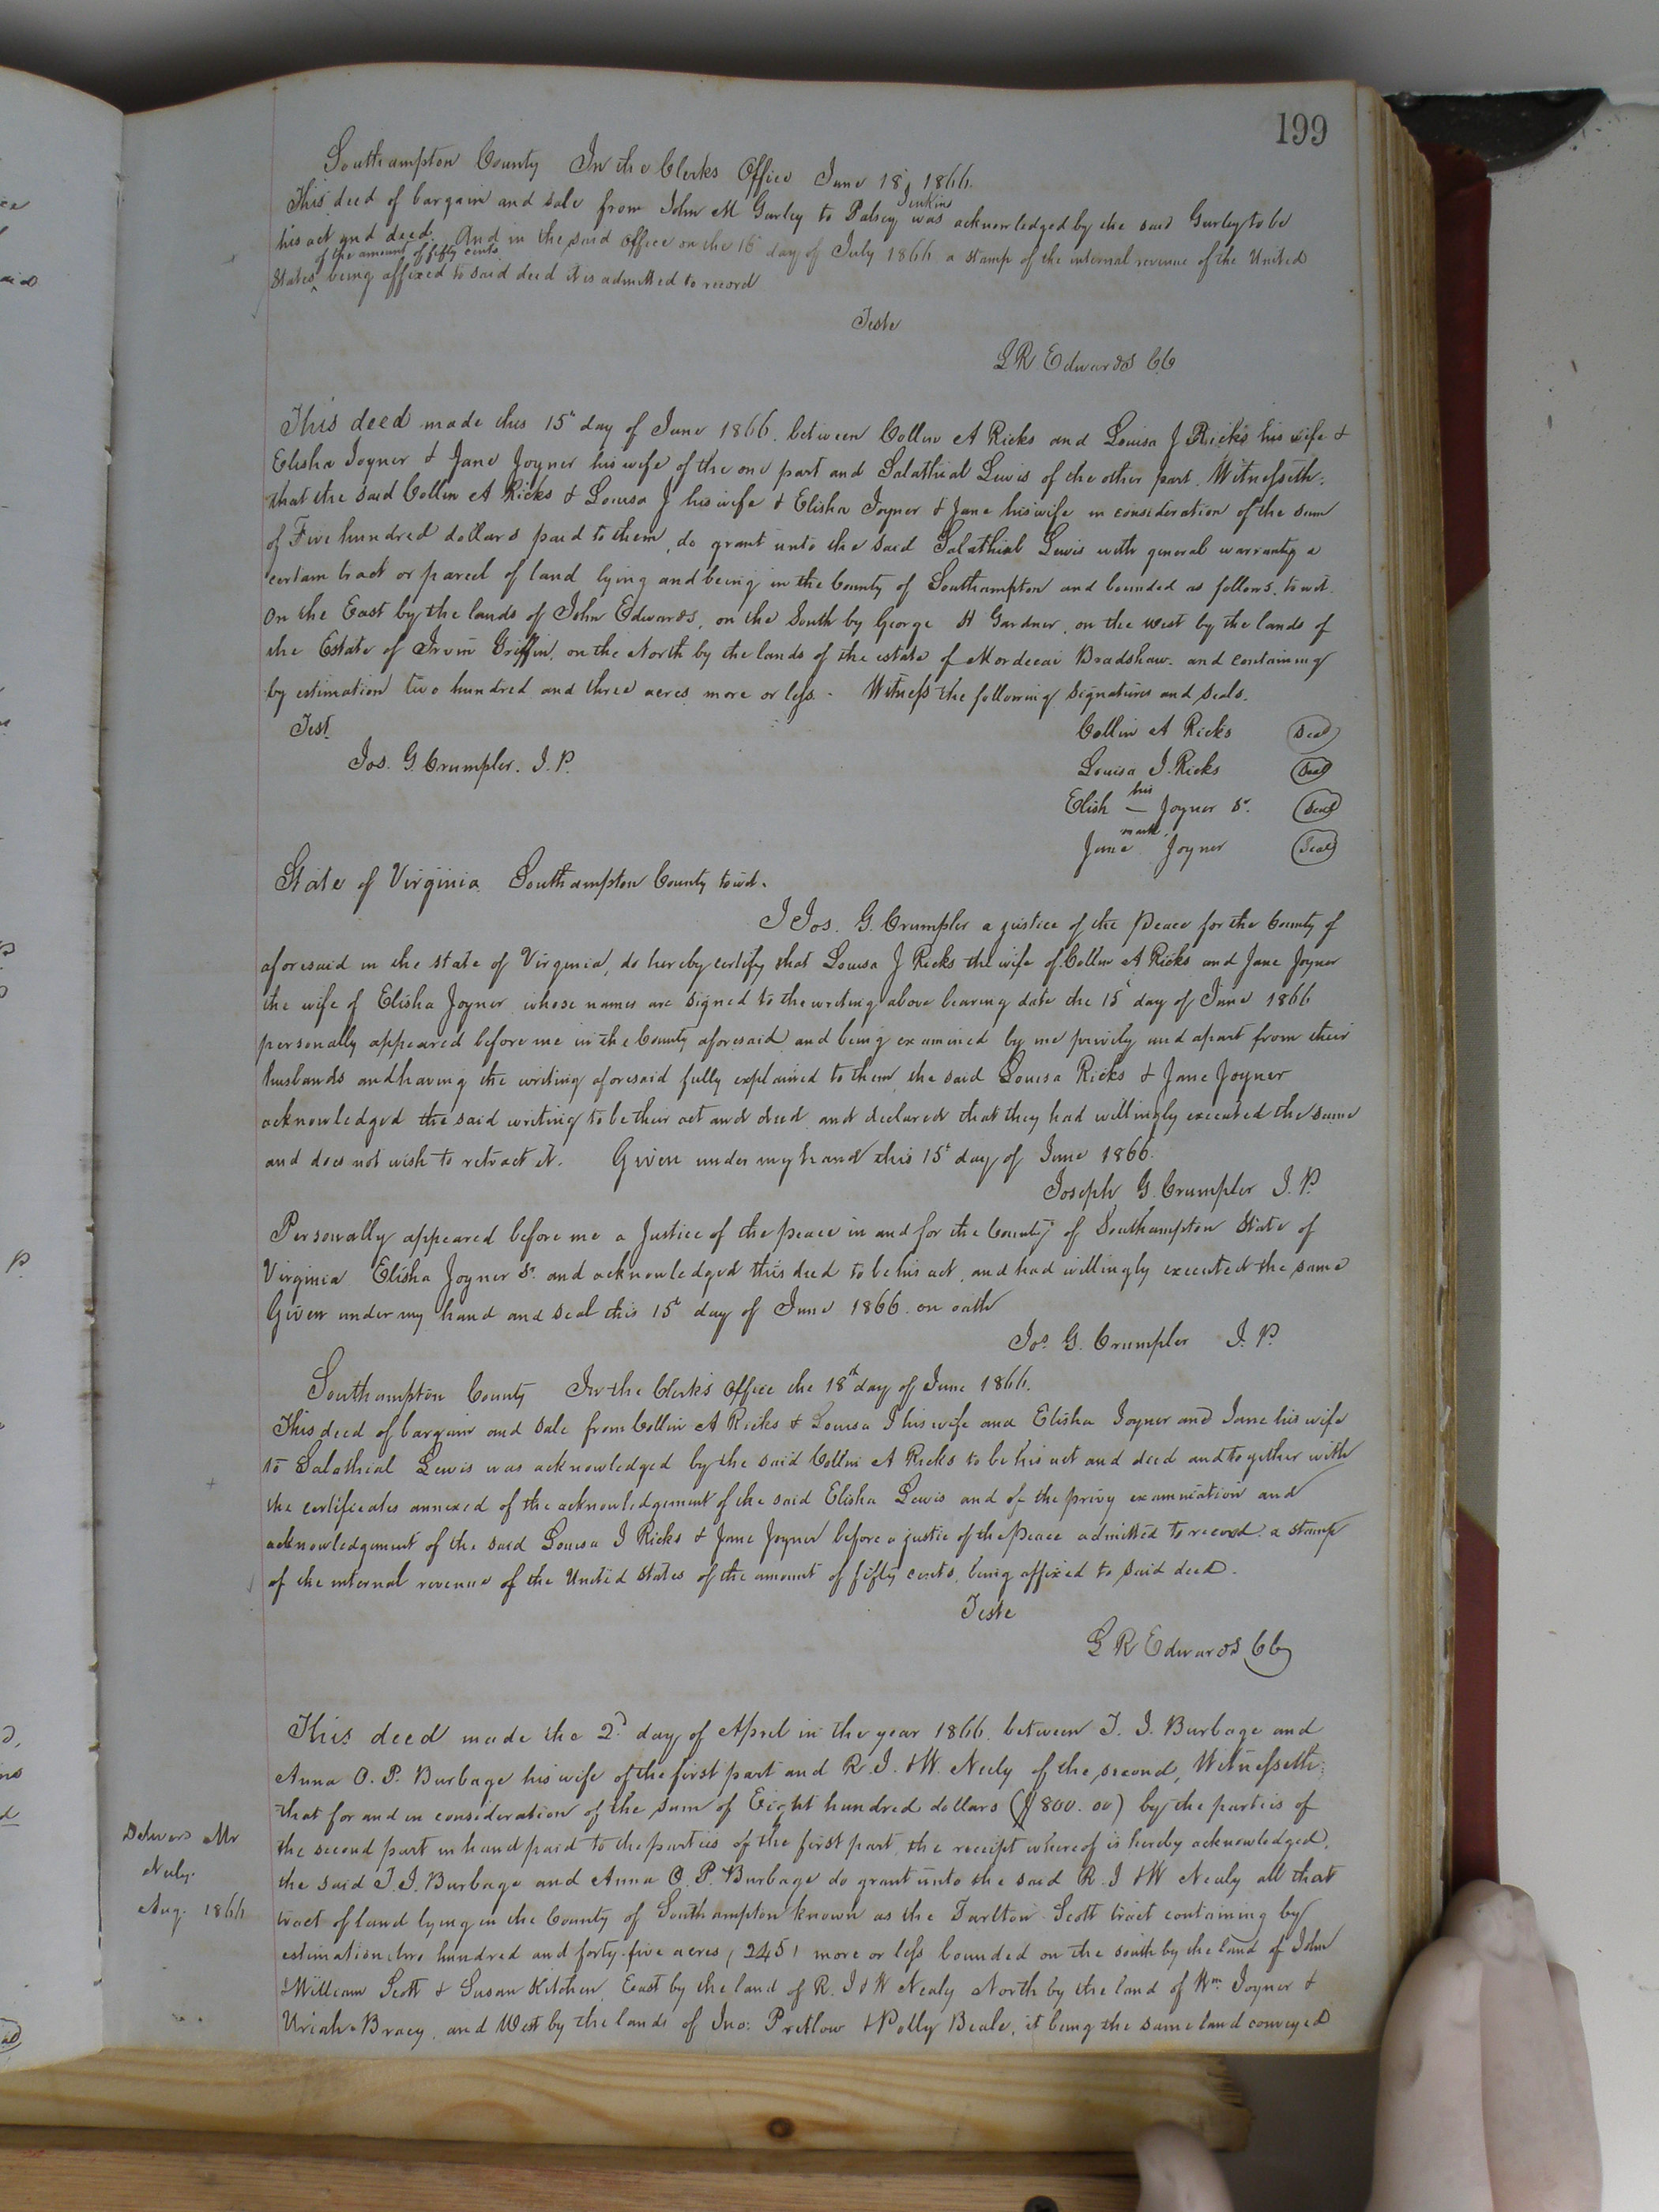 199
Southampton County In the Clerks Office June 18, 1866.
This deed of bargain and sale from John M Gurley to Patsey Jenkins was acknowledged by the said Gurley to be
his act and deed. And in the said office on the 16 day of July 1866 a stamp of the internal revenue of the United
States of the amount of fifty cents being affixed to said deed it is admitted to record
Teste
L R Edwards CC
This deed made this 15th day of June 1866. between Collin A Ricks and Louisa J Ricks his wife &
Elisha Joyner & Jane Joyner his wife of the one part and Salathial Lewis of the other part. Witnesseth:
that the said Collin A Ricks & Louisa J his wife & Elisha Joyner & Jane his wife in consideration of the sum
of Five hundred dollars paid to them, do grant unto the said Salathial Lewis with general warranty a
certain tract or parcel of land lying and being in the County of Southampton and bounded as follows, towit.
On the East by the lands of John Edwards, on the South by George H Gardner, on the west by the lands of
the Estate of Irvin Griffin, on the North by the lands of the estate of Mordecai Bradshaw. and containing
by estimation two hundred and three acres more or less. Witness the following signatures and seals.
Test.
Collin A Ricks Seal
Jos. G. Crumpler. J. P.
Louisa J. Ricks Seal
Elish his mark Joyner Sr. Seal
Jane Joyner Seal
State of Virginia Southampton County towit.
I Jos. G. Crumpler a justice of the Peace for the County of
aforesaid in the state of Virginia, do hereby certify that Louisa J Ricks the wife of Collin A Ricks and Jane Joyner
the wife of Elisha Joyner whose names are signed to the writing above bearing date the 15t day of June 1866
personally appeared before me in the County aforesaid and being examined by me privily and apart from their
husbands and having the writing aforesaid fully explained to them, the said Louisa Ricks & Jane Joyner
acknowledged the said writing to be their act and deed and declared that they had willingly executed the same
and does not wish to retract it. Given under my hand this 15t day of June 1866.
Joseph G. Crumpler J. P.
Personally appeared before me a Justice of the peace in and for the County of Southampton State of
Virginia Elisha Joyner Sr. and acknowledged this deed to be his act, and had willingly executed the same
Given under my hand and seal this 15t day of June 1866. on oath
Jos. G. Crumpler J. P.
Southampton County In the Clerk's Office the 18th day of June 1866.
This deed of bargain and sale from Collin A Ricks & Louisa J his wife and Elisha Joyner and Jane his wife
to Salathial Lewis was acknowledged by the said Collin A Ricks to be his act and deed and together with
the certificates annexed of the acknowledgement of the said Elisha Lewis and of the privy examination and
acknowledgement of the said Louisa J Ricks & Jane Joyner before a justice of the Peace admitted to record. a stamp
of the internal revenue of the United States of the amount of fifty cents, being affixed to said deed.
Teste
L R Edwards CC
This deed made the 2d day of April in the year 1866. between T. J. Burbage and
Anna O. P. Burbage his wife of the first part and R. J. & W. Neely of the second, Witnesseth:
that for and in consideration of the sum of Eight hundred dollars ($800.00) by the parties of
the second part in hand paid to the parties of the first part, the receipt whereof is hereby acknowledged.
the said T. J. Burbage and Anna O. P. Burbage do grant unto the said R. J & W Nealy all that
tract of land lying in the County of Southampton known as the Tarlton Scott tract containing by
estimation two hundred and forty-five acres, (245) more or less bounded on the south by the land of John
& William Scott & Susan Kitchen, East by the land of R. J & W Nealy North by the land of Wm Joyner &
Uriah Bracy, and West by the lands of Jno: Pretlow & Polly Beale, it being the same land conveyed
Delivered Mr
Neely.
Aug. 1866